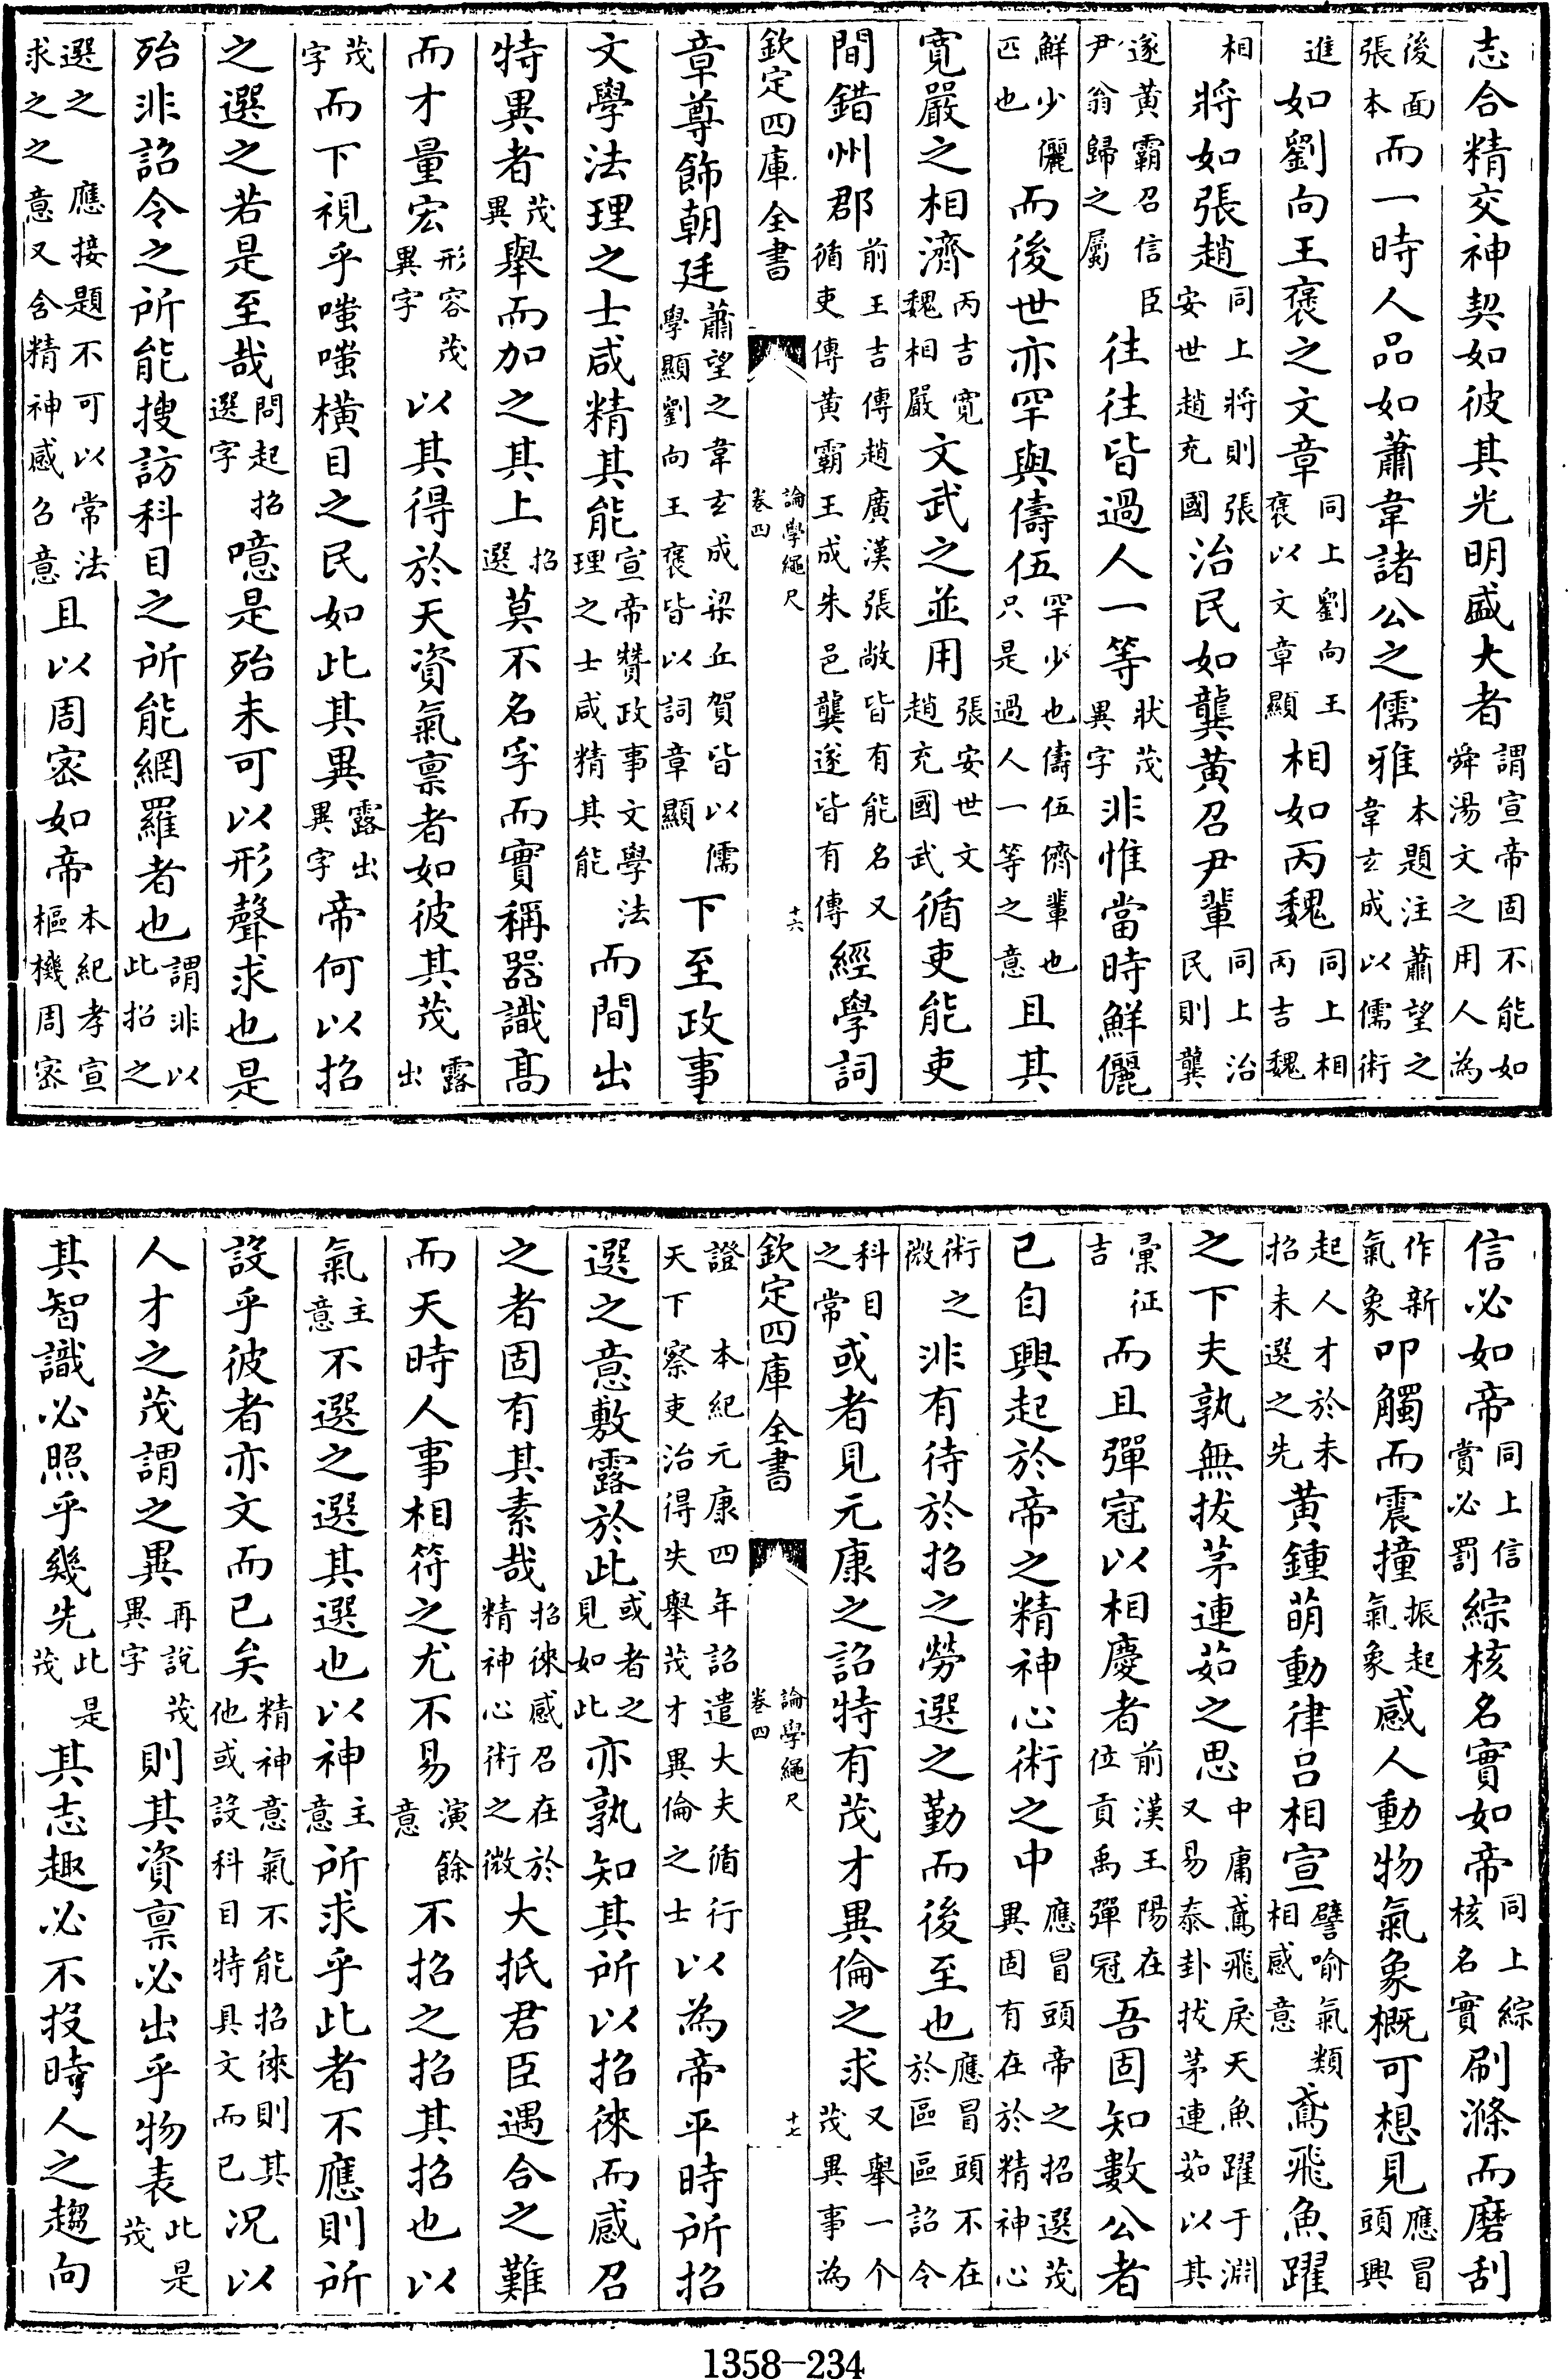 志合精交神契如彼其光明盛大者謂宣帝固不能如舜湯文之用人為
後面張本而一時人品如蕭韋諸公之儒雅本題注蕭望之韋玄成以儒術
進如劉向王褒之文章同上劉向王褒以文章顯相如丙魏同上相丙吉魏
相將如張趙同上將則張安世趙充國治民如龔黃召尹輩同上治民則龔
遂黃霸召信臣尹翁歸之屬往往皆過人一等狀茂異字非惟當時鮮儷
鮮少儷匹也而後世亦罕與儔伍罕少也儔伍儕輩也只是過人一等之意且其
寛嚴之相濟丙吉寛魏相嚴文武之並用張安世文趙充國武循吏能吏
間錯州郡前王吉傳趙廣漢張敞皆有能名又循吏傳黃霸王成朱邑龔遂皆有傳經學詞
欽定四庫全書 論學繩尺卷四 十六
章尊飾朝廷蕭望之韋玄成梁丘賀皆以儒學顯劉向王褒皆以詞章顯下至政事
文學法理之士咸精其能宣帝贊政事文學法理之士咸精其能而間出
特異者茂異舉而加之其上招選莫不名孚而實稱器識高
而才量宏形容茂異字以其得於天資氣稟者如彼其茂露出
茂字而下視乎嗤嗤橫目之民如此其異露出異字帝何以招
之選之若是至哉問起招選字噫是殆未可以形聲求也是
殆非詔令之所能搜訪科目之所能網羅者也謂非以此招之
選之應接題不可以常法求之之意又含精神感召意且以周密如帝本紀孝宣樞機周密
信必如帝同上信賞必罰綜核名實如帝同上綜核名實刷滌而磨刮
作新氣象叩觸而震撞振起氣象感人動物氣象概可想見應冒頭興
起人才於未招未選之先黃鍾萌動律呂相宣譬喻氣類相感意鳶飛魚躍
之下夫孰無拔茅連茹之思中庸鳶飛戾天魚躍于淵又易泰卦拔茅連茹以其
彙征吉而且彈冠以相慶者前漢王陽在位貢禹彈冠吾固知數公者
已自興起於帝之精神心術之中應冒頭帝之招選茂異固有在於精神心
術之微非有待於招之勞選之勤而後至也應冒頭不在於區區詔令
科目之常或者見元康之詔特有茂才異倫之求又舉一个茂異事為
欽定四庫全書 論學繩尺卷四 十七
證本紀元康四年詔遣大夫循行天下察吏治得失舉茂才異倫之士以為帝平時所招
選之意敷露於此或者之見如此亦孰知其所以招徠而感召
之者固有其素哉招徠感召在於精神心術之微大抵君臣遇合之難
而天時人事相符之尤不易演餘意不招之招其招也以
氣主意不選之選其選也以神主意所求乎此者不應則所
設乎彼者亦文而已矣精神意氣不能招徠則其他或設科目特具文而已况以
人才之茂謂之異再說茂異字則其資稟必出乎物表此是茂
其智識必照乎幾先此是茂其志趣必不投時人之趨向
1358-234